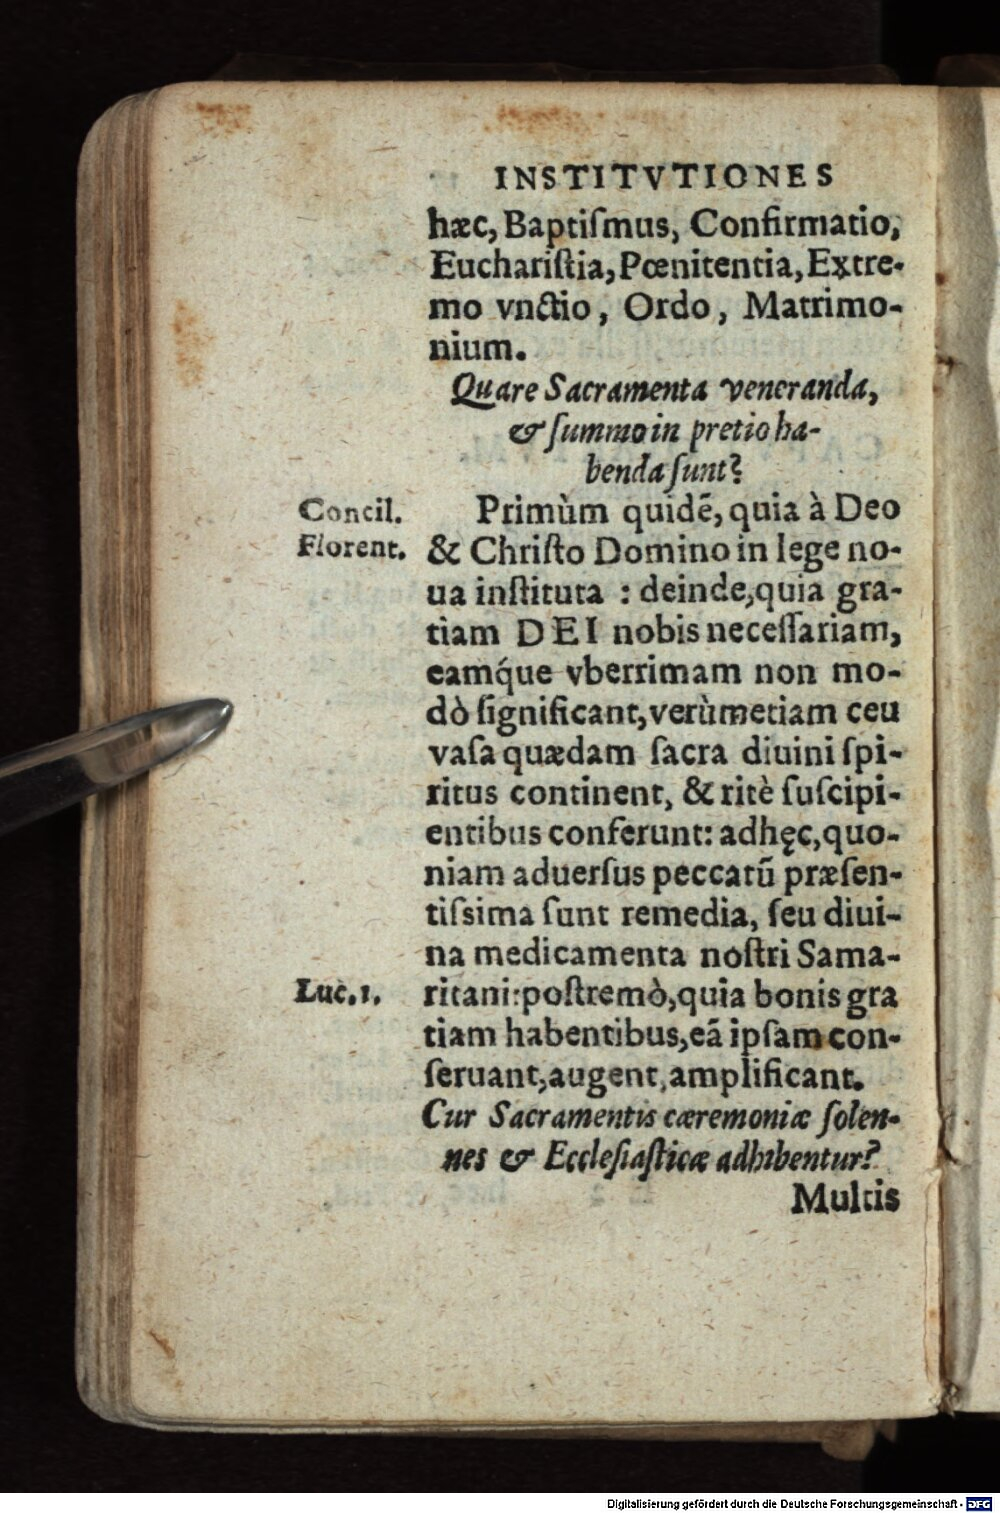 INSTITVTIONES
hæc, Baptiſmus, Confirmatio,
Euchariſtia, Pœnitentia, Extre-
mo vnctio, Ordo, Matrimo-
nium.
Quare Sacramenta veneranda,
& ſummo in pretio ha-
benda ſunt?
Concil.
Florent.
Primùm quidẽ, quia à Deo
& Chriſto Domino in lege no-
ua inſtituta : deinde, quia gra-
tiam DEI nobis neceſſariam,
eamq́ue vberrimam non mo-
dò ſignificant, verùmetiam ceu
vaſa quædam ſacra diuini ſpi-
ritus continent, & ritè ſuſcipi-
entibus conferunt: adhęc, quo-
niam aduerſus peccatũ præſen-
tiſsima ſunt remedia, ſeu diui-
na medicamenta noſtri Sama-
Luc. 1.
ritani: poſtremò, quia bonis gra
tiam habentibus, eã ipſam con-
ſeruant, augent, amplificant.
Cur Sacramentis cæremoniæ ſolen-
nes & Eccleſiaſticæ adhibentur?
Multis
Digitalisierung gefördert durch die Deutsche Forschungsgemeinschaft - DFG